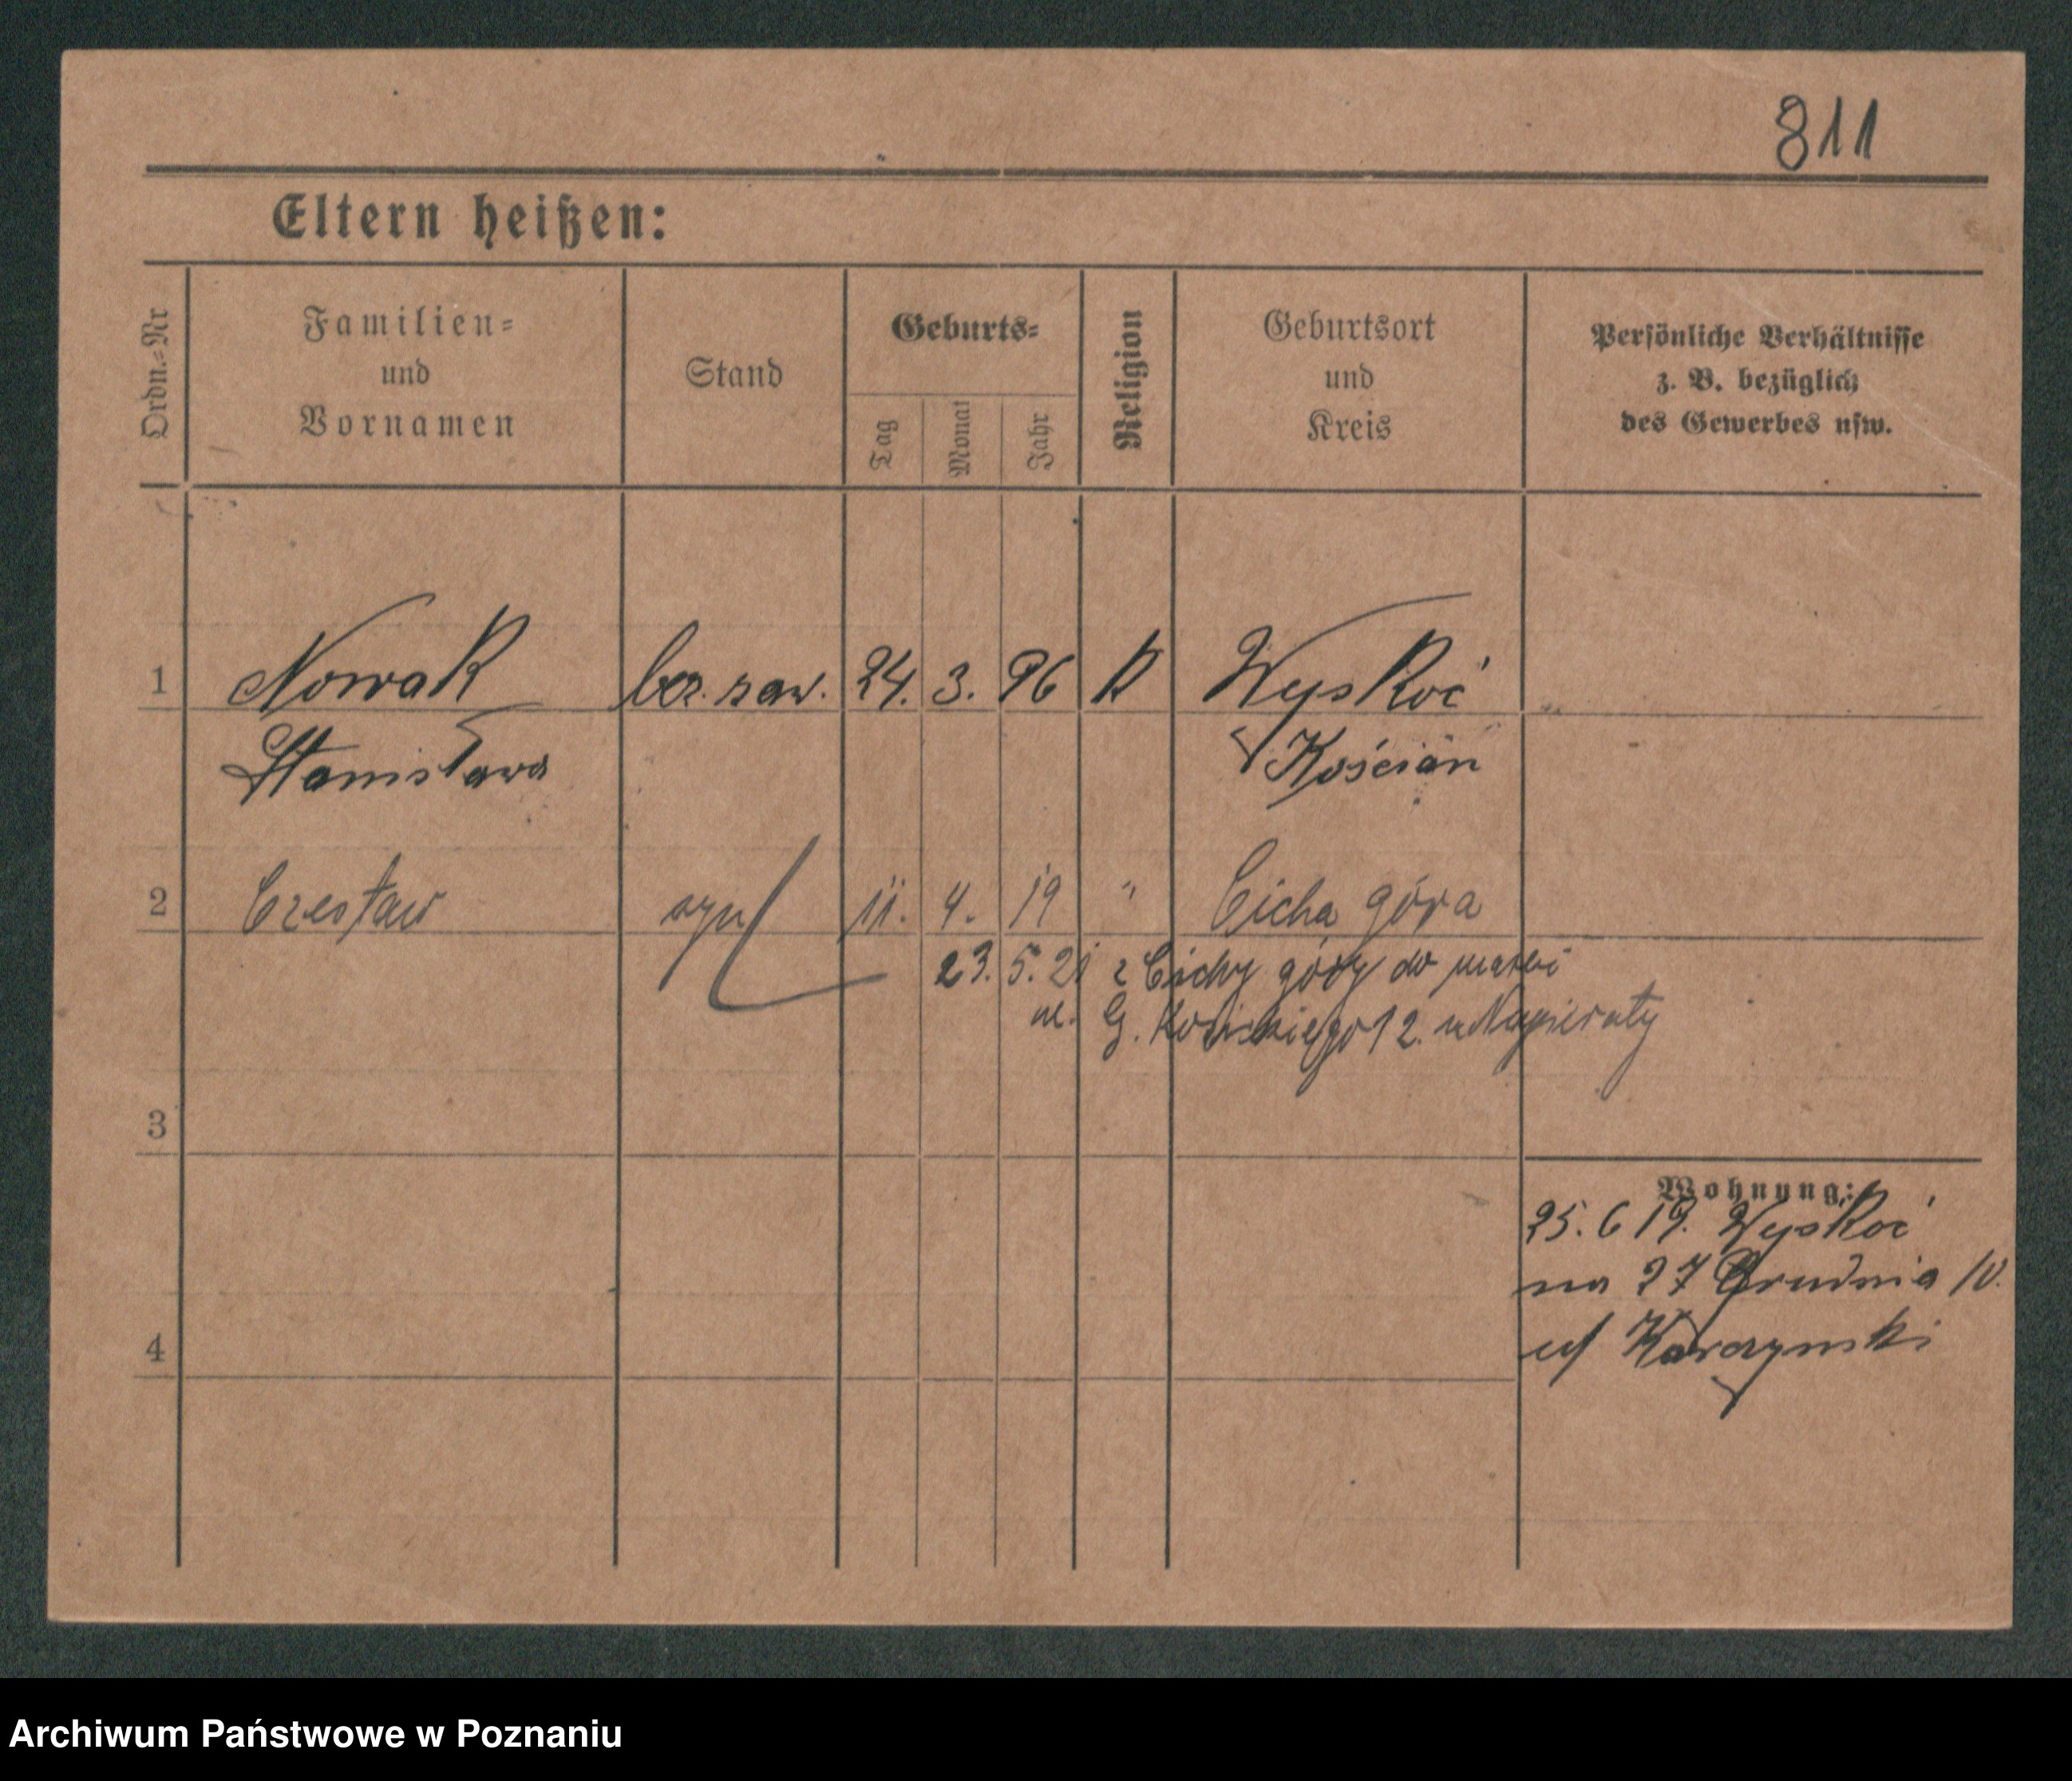 811
Eltern heißen:
Ordn.-Nr
Familien-
und
Vornamen
Stand
Geburts-
Tag
Monat
Jahr
Religion
Geburtsort
und
Kreis
Persönliche Verhältnisse
z. B. bezüglich
des Gewerbes usw.
1 Nowak bez. zaw. 24. 3. 96 K Wyskoć
Stanisława Kościan
2 Czesław syn 11. 4. 19 " Cicha góra
23. 5. 21 z Cichy góry do matki
ul. G. 12. u Napierały
3
Wohnung:
25. 6 19. Wyskoć
na 27 Grudnia 10.
4
u/ Karczynski
Archiwum Państwowe w Poznaniu